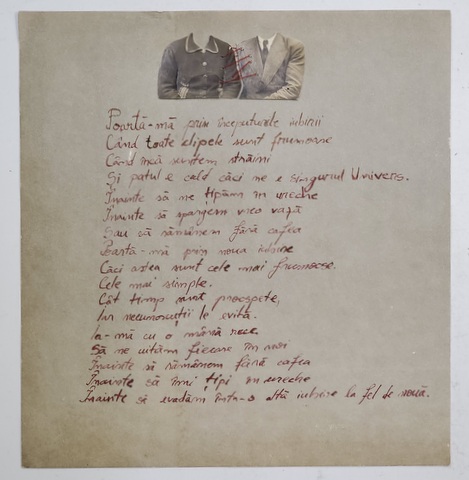 Poartă-mă prin începuturile iubirii
Când toate clipele sunt frumoase
Când încă suntem străini
Și patul e cald căci ne e singurul Univers.
Înainte să ne țipăm în ureche
Înainte să spargem vreo vază
Sau să rămânem fără cafea
Poartă-mă prin noua iubire
Căci astea sunt cele mai frumoase.
Cele mai simple.
Cât timp sunt proaspete,
Iar necunoscuții le evită.
Ia-mă cu o mână rece
Să ne uităm fiecare în noi
Înainte să rămânem fără cafea
Înainte să îmi țipi în ureche
Înainte să evadăm într-o altă iubire la fel de nouă.